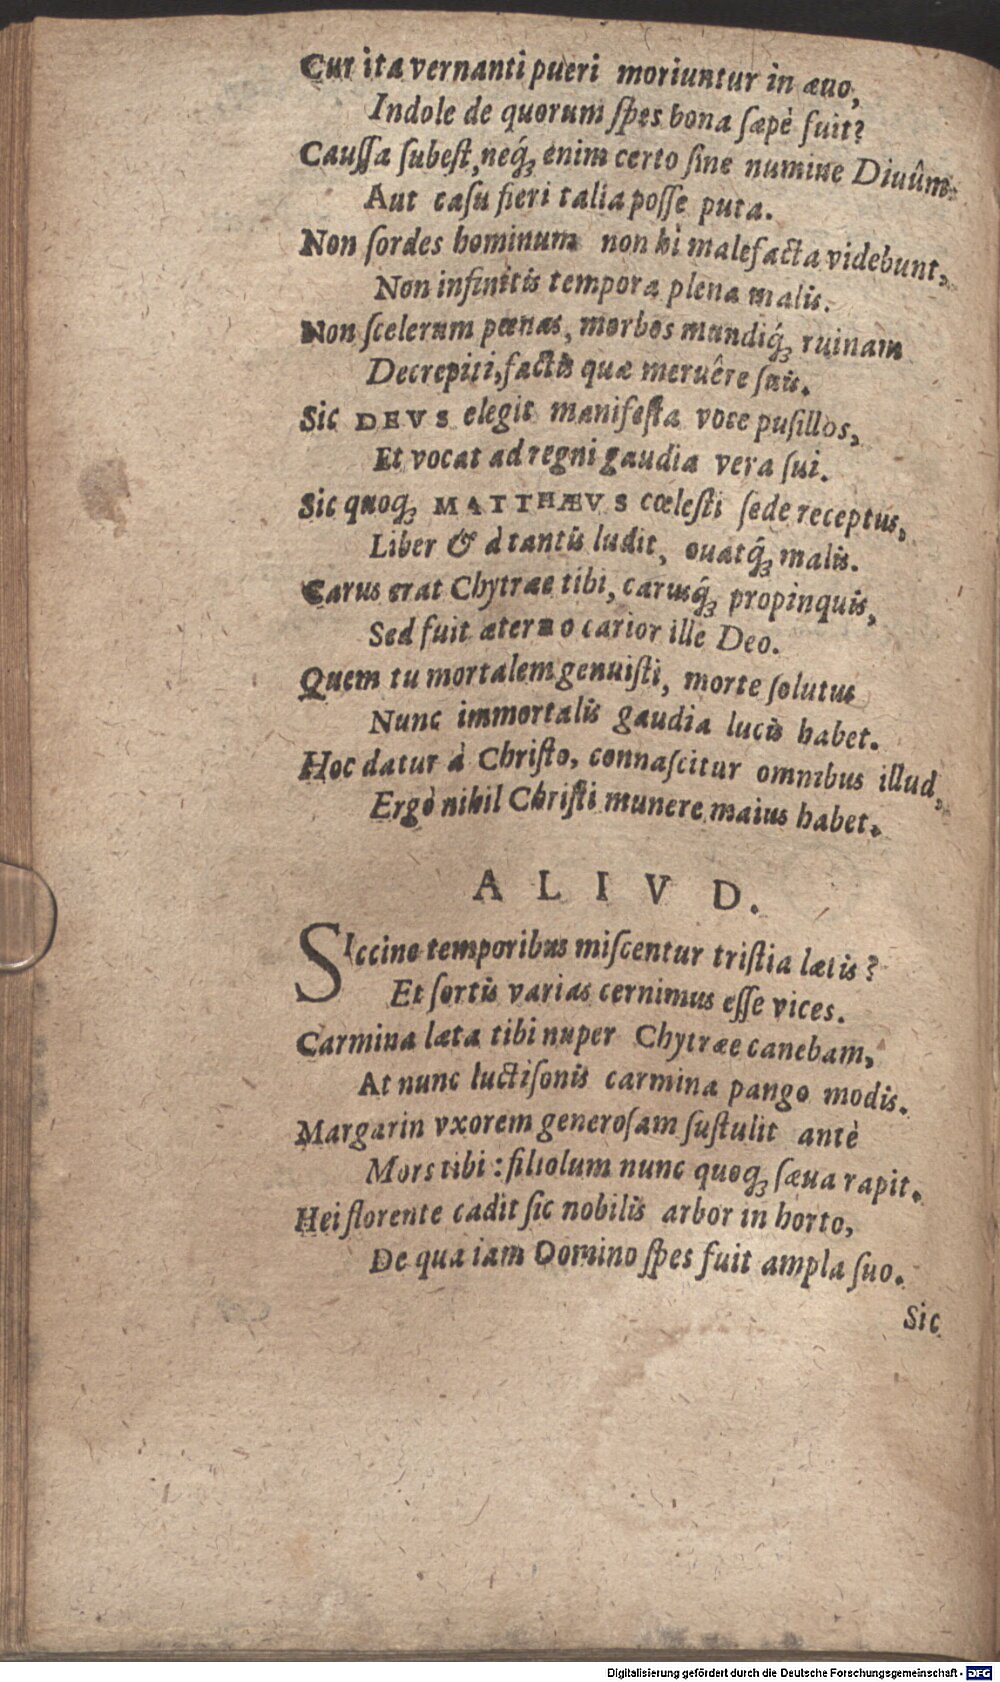 Cur ita vernanti pueri moriuntur in æuo,
Indole de quorum ſpes bona ſæpè fuit?
Cauſſa ſubeſt, neq́ꝫ enim certo ſine numine Diuûm
Aut caſu fieri talia poſſe puta.
Non ſordes hominum non hi malefacta videbunt,
Non infinitis tempora plena malis.
Non ſcelerum pœnas, morbos mundiq́ꝫ ruinam
Decrepiti, factis quæ meruêre ſuis.
Sic DEVS elegit manifeſta voce puſillos,
Et vocat ad regni gaudia vera ſui.
Sic quoqꝫ MATTHÆVS cœleſti ſede receptus,
Liber & à tantis ludit, ouatq́ꝫ malis.
Carus erat Chytræe tibi, carusq́ꝫ propinquis,
Sed fuit æterno carior ille Deo.
Quem tu mortalem genuiſti, morte ſolutus
Nunc immortalis gaudia lucis habet.
Hoc datur à Chriſto, connaſcitur omnibus illud,
Ergò nihil Chriſti munere maius habet.
ALIVD.
SIccine temporibus miſcentur triſtia lætis?
Et ſortis varias cernimus eſſe vices.
Carmina læta tibi nuper Chytræe canebam,
At nunc luctiſonis carmina pango modis.
Margarin vxorem generoſam ſuſtulit antè
Mors tibi: filiolum nunc quoqꝫ ſæua rapit.
Hei florente cadit ſic nobilis arbor in horto,
De qua iam Domino ſpes fuit ampla ſuo.
Sic
Digitalisierung gefördert durch die Deutsche Forschungsgemeinschaft - DFG